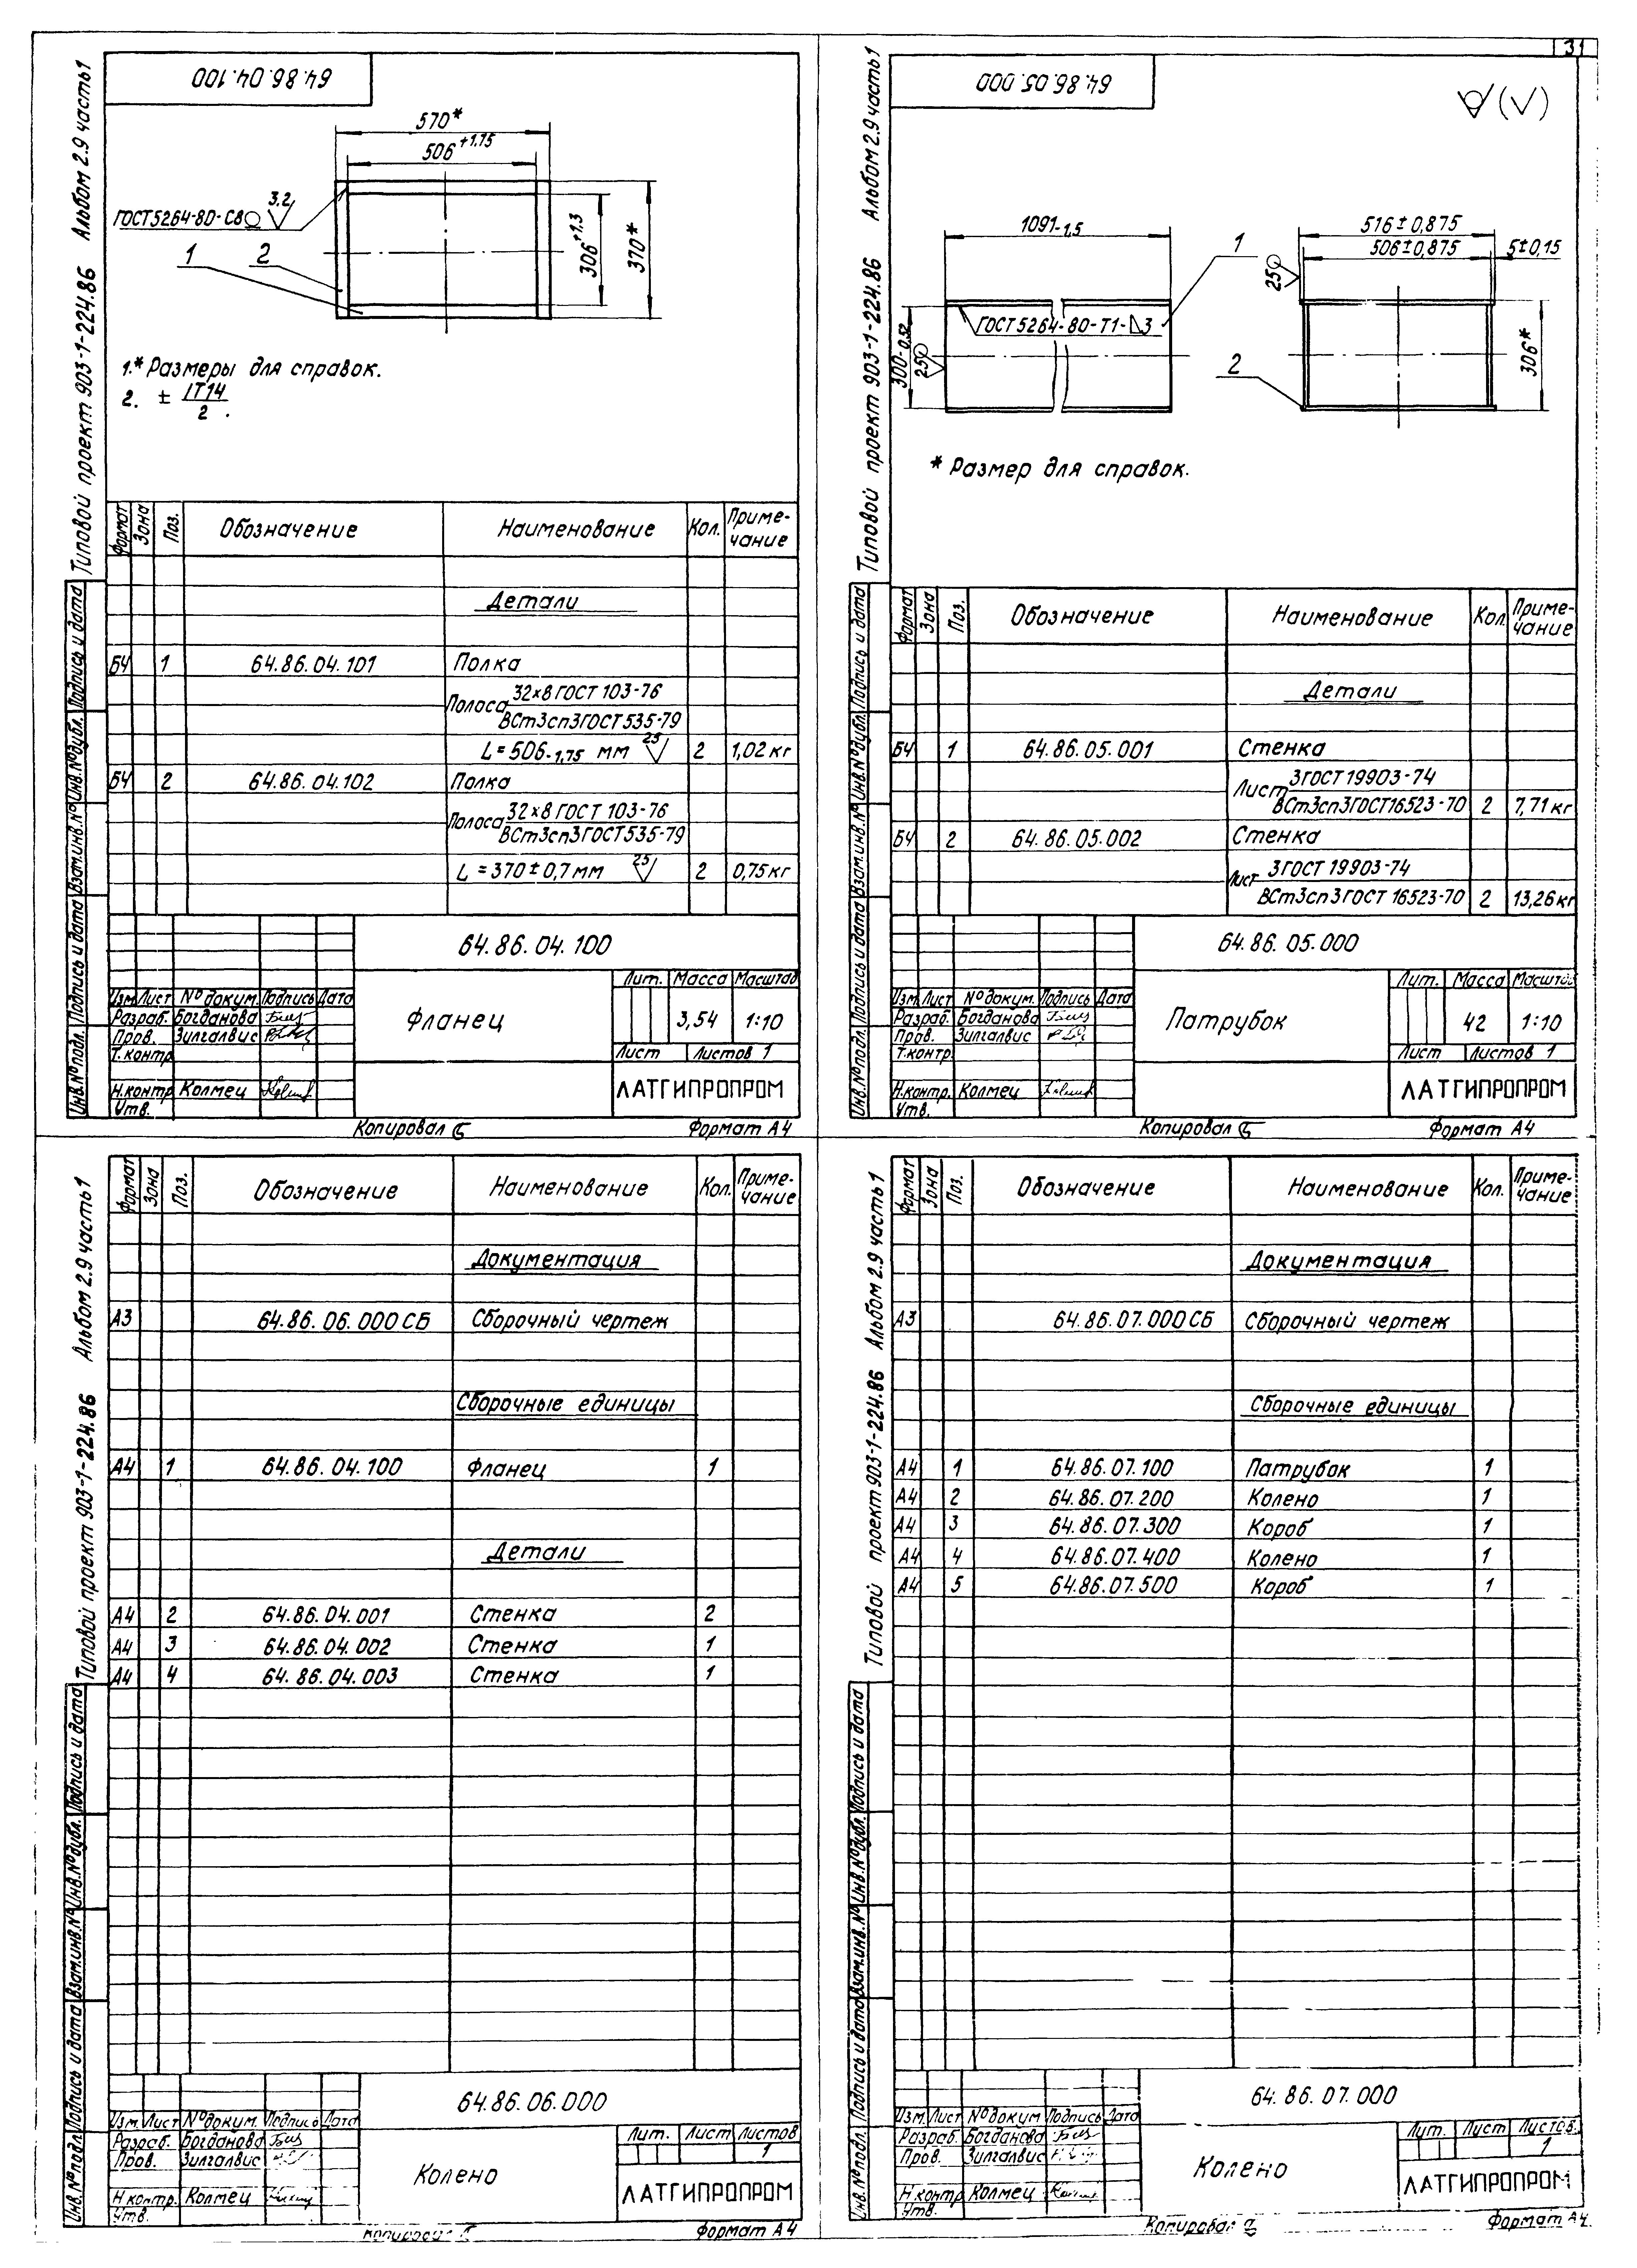 31
64.86.04.100
Типовой проект 903-1-224.86 Альбом 2.9 часть 1
570*
506 +1.75
ГОСТ 5264-80-С8 3.2
1 2
306 +1.3
370*
1.* Размеры для справок.
2. ± IT14/2 .
Формат Зона Поз. Обозначение Наименование Кол. Примечание
Детали
БЧ 1 64.86.04.101 Полка
Полоса 32х8 ГОСТ 103-76
ВСт3сп3 ГОСТ 535-79
L=506-1,75 мм 25 2 1,02 кг
БЧ 2 64.86.04.102 Полка
Полоса 32х8 ГОСТ 103-76
ВСт3сп3 ГОСТ 535-79
L=370±0,7 мм 25 2 0,75 кг
64.86.04.100
Изм. Лист № докум. Подпись Дата
Разраб. Богданова
Пров. Зилгалвис
Т.контр
Н.контр. Колмец
Утв.
Фланец
Лит. Масса Масштаб
3,54 1:10
Лист Листов 1
ЛАТГИПРОПРОМ
Инв.№ подл. Подпись и дата Взам.инв.№ Инв.№ дубл. Подпись и дата
Копировал Формат А4
64.86.05.000
Типовой проект 903-1-224.86 Альбом 2.9 часть 1
1091-1,5
516±0,875
506±0,875 5±0,15
1
25
ГОСТ 5264-80-Т1-3
300-0,52
25
2
306*
* Размер для справок.
Формат Зона Поз. Обозначение Наименование Кол. Примечание
Детали
БЧ 1 64.86.05.001 Стенка
Лист 3 ГОСТ 19903-74
ВСт3сп3 ГОСТ 16523-70 2 7,71 кг
БЧ 2 64.86.05.002 Стенка
Лист 3 ГОСТ 19903-74
ВСт3сп3 ГОСТ 16523-70 2 13,26 кг
64.86.05.000
Изм. Лист № докум. Подпись Дата
Разраб. Богданова
Пров. Зилгалвис
Т.контр.
Н.контр. Колмец
Утв.
Патрубок
Лит. Масса Масштаб
42 1:10
Лист Листов 1
ЛАТГИПРОПРОМ
Инв.№ подл. Подпись и дата Взам.инв.№ Инв.№ дубл. Подпись и дата
Копировал Формат А4
Типовой проект 903-1-224.86 Альбом 2.9 часть 1
Формат Зона Поз. Обозначение Наименование Кол. Примечание
Документация
А3 64.86.06.000 СБ Сборочный чертеж
Сборочные единицы
А4 1 64.86.04.100 Фланец 1
Детали
А4 2 64.86.04.001 Стенка 2
А4 3 64.86.04.002 Стенка 1
А4 4 64.86.04.003 Стенка 1
64.86.06.000
Изм. Лист № докум. Подпись Дата
Разраб. Богданова
Пров. Зилгалвис
Н.контр. Колмец
Утв.
Колено
Лит. Лист Листов
1
ЛАТГИПРОПРОМ
Инв.№ подл. Подпись и дата Взам.инв.№ Инв.№ дубл. Подпись и дата
Копировал Формат А4
Типовой проект 903-1-224.86 Альбом 2.9 часть 1
Формат Зона Поз. Обозначение Наименование Кол. Примечание
Документация
А3 64.86.07.000 СБ Сборочный чертеж
Сборочные единицы
А4 1 64.86.07.100 Патрубок 1
А4 2 64.86.07.200 Колено 1
А4 3 64.86.07.300 Короб 1
А4 4 64.86.07.400 Колено 1
А4 5 64.86.07.500 Короб 1
64.86.07.000
Изм. Лист № докум Подпись Дата
Разраб. Богданова
Пров. Зилгалвис
Н.контр. Колмец
Утв.
Колено
Лит. Лист Листов
1
ЛАТГИПРОПРОМ
Инв.№ подл. Подпись и дата Взам.инв.№ Инв.№ дубл. Подпись и дата
Копировал Формат А4